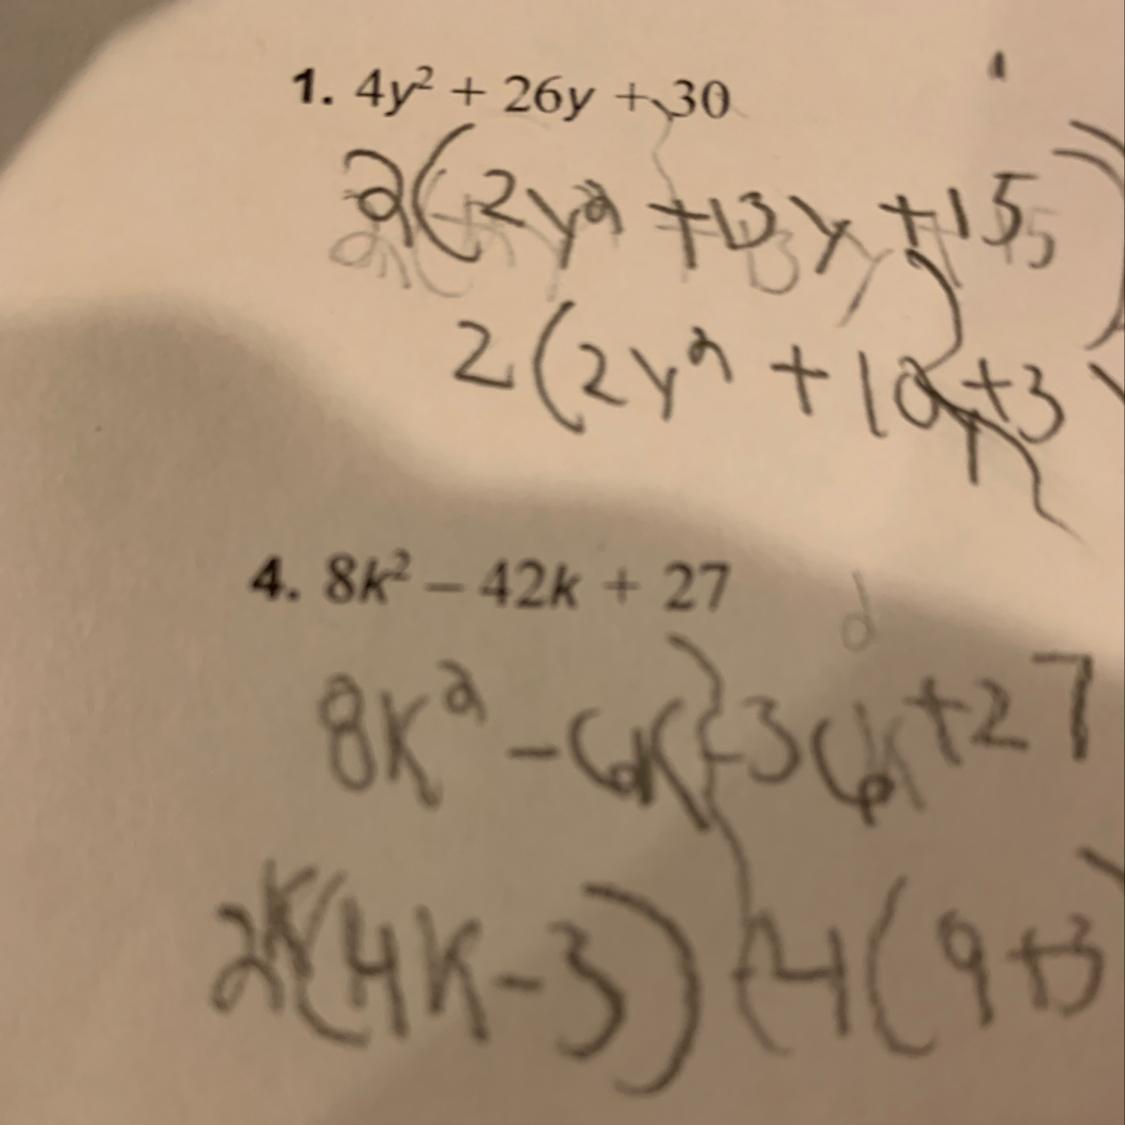 1. 4y² + 26y + 30
2(2y² + 13y + 15)
2(2y² + 10y + 3
4. 8k² – 42k + 27
8k² - 6k - 36k + 27
2k(4k - 3) -4(9 + 3)